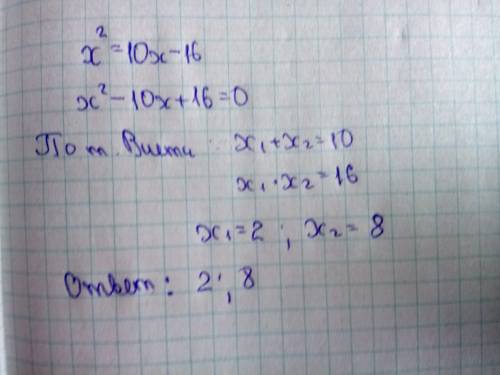 x² = 10x - 16
x² - 10x + 16 = 0
По т. Виета: x₁ + x₂ = 10
x₁ · x₂ = 16
x₁ = 2 ; x₂ = 8
Ответ: 2 ; 8